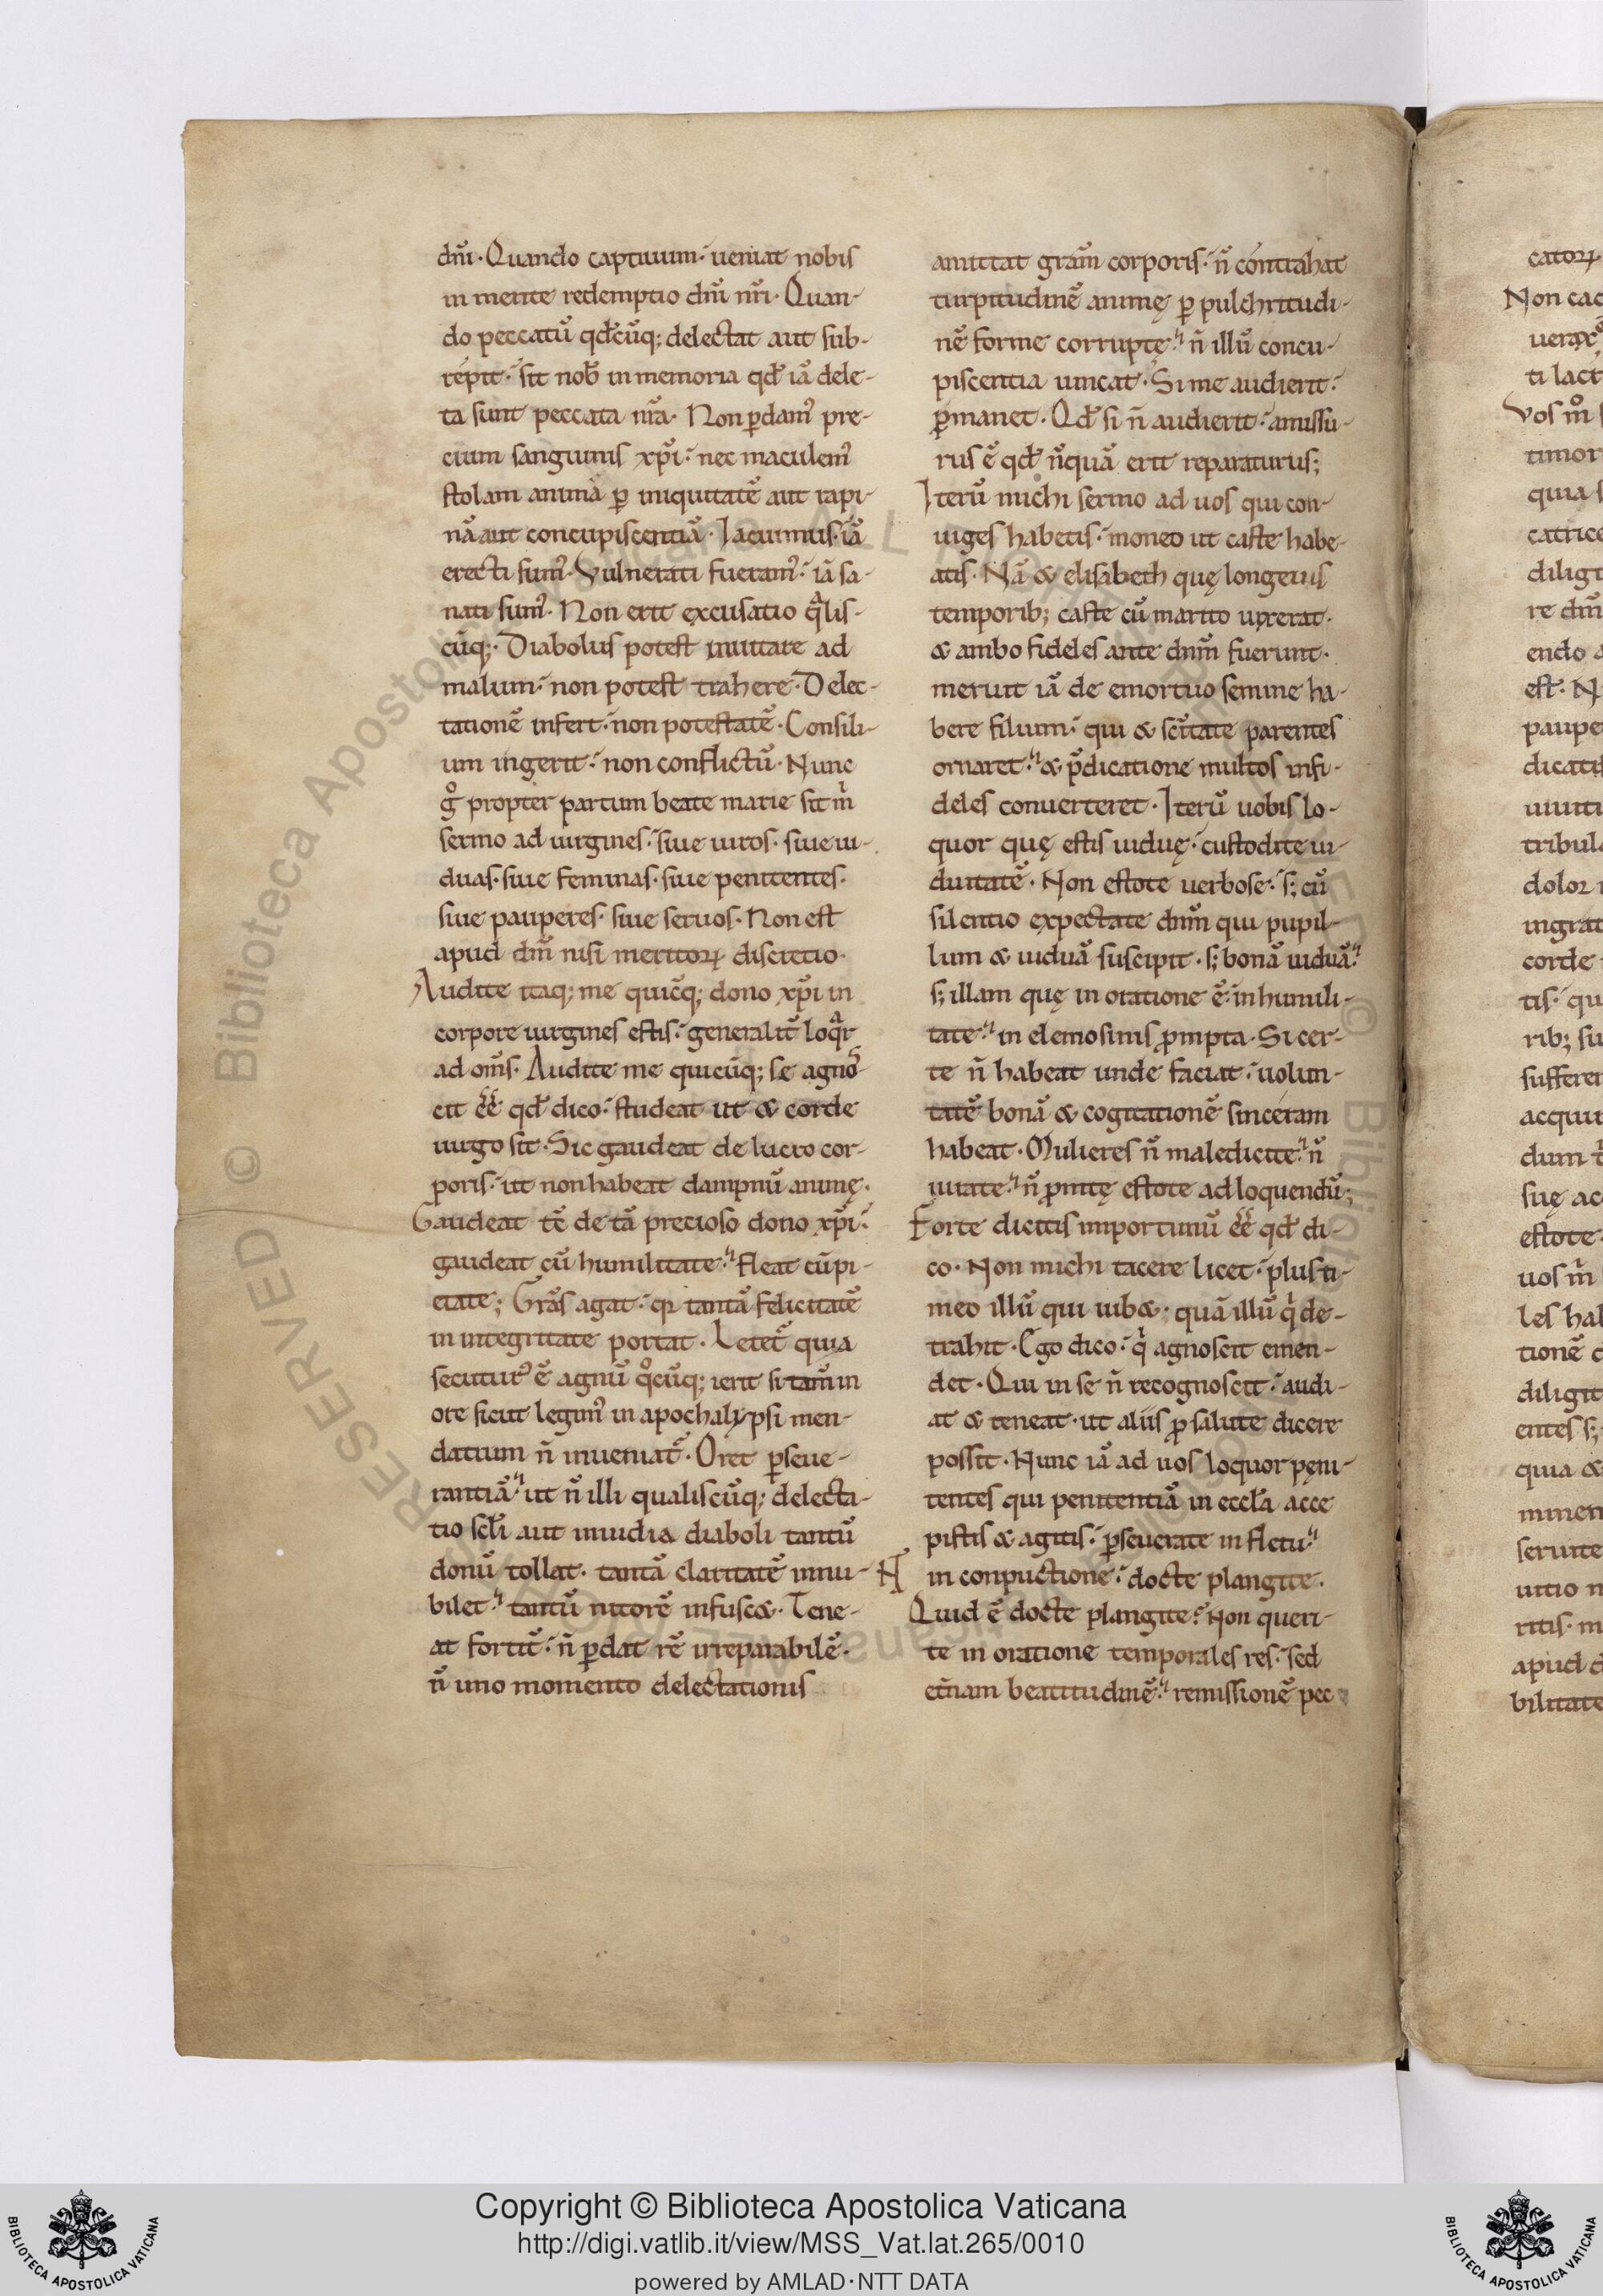 dm̄i. Quando captiuum. ueniat nobis
in mente redemptio dm̄i nr̄i. Quan-
do peccatū qd̄cūq; delectat aut sub-
repit. sit nob̄ in memoria qd̄ iā dele-
ta sunt peccata nr̄a. Non ꝑdamꝰ pre-
cium sanguinis xp̄i. nec maculemꝰ
stolam animā ꝑ iniquitatē aut rapi-
nā aut concupiscentiā. Iacuimus. iā
erecti sumꝰ. Vulnerati fueramꝰ. iā sa-
nati sumꝰ. Non erit excusatio qͣlis-
cūq;. Diabolus potest inuitare ad
malum. non potest trahere. Delec-
tationē infert. non potestatē. Consili-
um ingerit. non conflictū. Nunc
gͦ propter partum beate marie sit m̄
sermo ad uirgines. siue uiros. siue ui-
duas. siue feminas. siue penitentes.
siue pauperes. siue seruos. Non est
apud dm̄ nisi meritoꝝ discretio.
Audite itaq; me quicūq; dono xp̄i in
corpore uirgines estis. generalit̄ loqͣr
ad om̄s. Audite me quicūq; se agnos-
cit ēē qd̄ dico. studeat ut & corde
uirgo sit. Sic gaudeat de lucro cor-
poris. ut non habeat dampnū animę.
Gaudeat tē de tā precioso dono xp̄i.
gaudeat cū humilitate. fleat cū pi-
etate; Grās agat. qꝛ tantā felicitatē
in integritate portat. Letet̄ quia
secuturꝰ ē agnū qͦcūq; ierit si tam̄ in
ore sicut legimꝰ in apochalypsi men-
datium n̄ inueniat̄. Oret ꝑseue-
rantiā. ut n̄ illi qualiscūq; delecta-
tio scl̄i aut inuidia diaboli tantū
donū tollat. tantā claritatē innu-
bilet. tantū nitorē infusc&. Tene-
at fortit̄. n̄ ꝑdat rē irreparabilē.
n̄ uno momento delectationis
amittat grām corporis. n̄ contrahat
turpitudinē animę ꝑ pulchritudi-
nē forme corruptę. n̄ illū concu-
piscentia uincat. Si me audierit.
ꝑmanet. Qd̄ si n̄ audierit. amissu-
rus ē qd̄ nūquā erit reparaturus;
Iterū michi sermo ad uos qui con-
iuges habetis. moneo ut caste habe-
atis. Nā & elisabeth quę longeuis
temporib; caste cū marito uixerat.
& ambo fideles ante dnm̄ fuerunt.
meruit iā de emortuo semine ha-
bere filium. qui & scītate parentes
ornaret. & p̄dicatione multos infi-
deles conuerteret. Iterū uobis lo-
quor quę estis uiduę. custodite ui-
duitatē. Non estote uerbose. s; cū
silentio expectate dnm̄ qui pupil-
lum & uiduā suscipit. s; bonā uiduā.
s; illam quę in oratione ē. in humili-
tate. in elemosinis ꝓmpta. Si cer-
te n̄ habeat unde faciat. uolun-
tatē bonā & cogitationē sinceram
habeat. Mulieres n̄ maledicite. n̄
iurate. n̄ ꝓmtę estote ad loquendū;
Forte dicitis importunū ēē qd̄ di-
co. Non michi tacere licet. plus ti-
meo illū qui iub&. quā illū qͥ de-
trahit. Ego dico. qͥ agnoscit emen-
det. Qui in se n̄ recognoscit. audi-
at & teneat. ut aliis ꝓ salute dicere
possit. Nunc iā ad uos loquor pęni-
tentes qui penitentiā in eccl̄a acce
pistis & agitis. ꝑseuerate in fletu.
in conpuctione. docte plangite.
Quid ē docte plangite. Non queri-
te in oratione temporales res. sed
et̄nam beatitudinē. remissionē pec
catoꝝ
Non cac
ti lact
Vos m̄
timor
quia s
catrice
diligi
re dm̄
endo a
est. N
paupe
dicatis
uiuiti
tribula
dolor
ingrat
corde
tis. qu
rib; su
sufferen
acquir
dum
suę ac
estote.
uos m̄
les hab
tionē c
diligit
entes s;
quia &
inmen
seruite
uitio n
ritis. m
apud d
bilitate
© Biblioteca Apostolica Vaticana ALL RIGHTS RESERVED
Copyright © Biblioteca Apostolica Vaticana
http://digi.vatlib.it/view/MSS_Vat.lat.265/0010
powered by AMLAD·NTT DATA
BIBLIOTECA APOSTOLICA VATICANA
BIBLIOTECA APOSTOLICA VATICANA